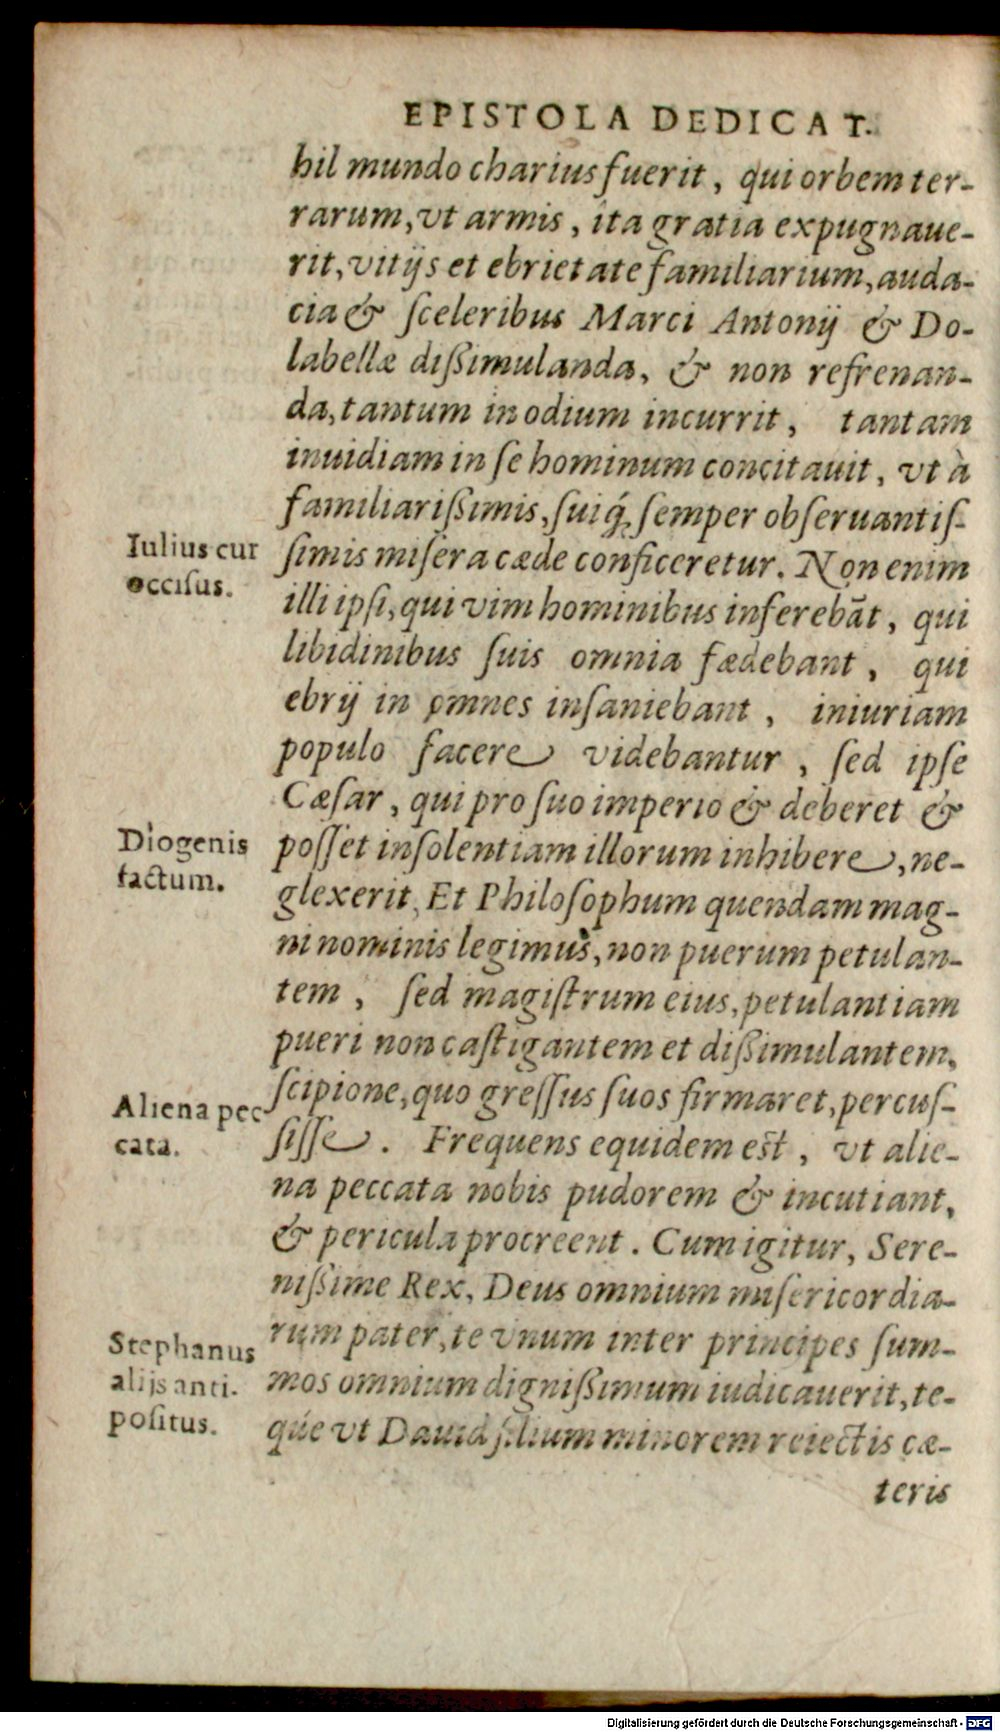 EPISTOLA DEDICAT.
hil mundo charius fuerit, qui orbem ter-
rarum, vt armis, ita gratia expugnaue-
rit, vitijs et ebrietate familiarium, auda-
cia & ſceleribus Marci Antonij & Do-
labellæ dißimulanda, & non refrenan-
da, tantum in odium incurrit, tantam
inuidiam in ſe hominum concitauit, vt à
familiarißimis, ſuiq́; ſemper obſeruantiſ-
Iulius cur
occiſus.
ſimis miſera cæde conficeretur. Non enim
illi ipſi, qui vim hominibus inferebāt, qui
libidinibus ſuis omnia fædebant, qui
ebrij in omnes inſaniebant, iniuriam
populo facere videbantur, ſed ipſe
Cæſar, qui pro ſuo imperio & deberet &
Diogenis
factum.
poſſet inſolentiam illorum inhibere, ne-
glexerit. Et Philoſophum quendam mag-
ni nominis legimus, non puerum petulan-
tem, ſed magiſtrum eius, petulantiam
pueri non caſtigantem et dißimulantem,
ſcipione, quo greſſus ſuos firmaret, percuſ-
Aliena pec
cata.
ſiſſe. Frequens equidem eſt, vt alie-
na peccata nobis pudorem & incutiant,
& pericula procreent. Cum igitur, Sere-
nißime Rex, Deus omnium miſericordia-
rum pater, te vnum inter principes ſum-
Stephanus
alijs anti-
poſitus.
mos omnium dignißimum iudicauerit, te-
qúe vt Dauid filium minorem reiectis cæ-
teris
Digitalisierung gefördert durch die Deutsche Forschungsgemeinschaft - DFG